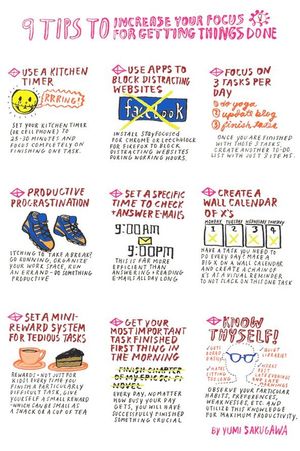 9 TIPS TO INCREASE YOUR FOCUS
FOR GETTING THINGS DONE
USE A KITCHEN
TIMER
RRRING!)
SET YOUR KITCHEN TIMER
(OR CELL PHONE) TO
25-30 MINUTES AND
FOCUS COMPLETELY ON
FINISHING ONE TASK.
USE APPS TO
BLOCK DISTRACTING
WEBSITES
facebook
INSTALL STAYFOCUSD
FOR CHROME OR LEECHBLOCK
FOR FIREFOX TO BLOCK
DISTRACTING WEBSITES
DURING WORKING HOURS.
FOCUS ON
3 TASKS PER
DAY
① do yoga
② update blog
③ finish taxes
ONCE YOU ARE FINISHED
WITH THOSE 3 TASKS,
CREATE ANOTHER TO-DO
LIST WITH JUST 3 ITEMS.
PRODUCTIVE
PROCRASTINATION
ITCHING TO TAKE A BREAK?
GO RUNNING, ORGANIZE
YOUR WORK SPACE, RUN
AN ERRAND - DO SOMETHING
PRODUCTIVE
SET A SPECIFIC
TIME TO CHECK
+ ANSWER E-MAILS
9:00AM
9:00PM
THIS IS FAR MORE
EFFICIENT THAN
ANSWERING + READING
E-MAILS ALL DAY LONG
CREATE A
WALL CALENDAR
OF X'S
MONDAY TUESDAY WEDNESDAY THURSDAY
1 2 3 4
HAVE A TASK YOU NEED TO
DO EVERY DAY? MAKE A
BIG X ON A WALL CALENDAR
AND CREATE A CHAIN OF
X'S AS A VISUAL REMINDER
TO NOT SLACK ON THIS ONE TASK
SET A MINI-
REWARD SYSTEM
FOR TEDIOUS TASKS
REWARDS - NOT JUST FOR
KIDS! EVERY TIME YOU
FINISH A PARTICULARLY
DIFFICULT TASK, GIVE
YOURSELF A SMALL REWARD
WHICH CAN BE SMALL AS
A SNACK OR A CUP OF TEA
GET YOUR
MOST IMPORTANT
TASK FINISHED
FIRST THING IN
THE MORNING
FINISH CHAPTER
OF MY EPIC SCI-FI
NOVEL
EVERY DAY, NO MATTER
HOW BUSY YOUR DAY
GETS, YOU WILL HAVE
SUCCESSFULLY FINISHED
SOMETHING CRUCIAL
KNOW
THYSELF!
GETS
BORED
EASILY
HATES
SITTING
TOO LONG
OBSERVE YOUR PARTICULAR
HABITS, PREFERENCES,
WEAKNESSES, ETC. AND
UTILIZE THIS KNOWLEDGE
FOR MAXIMUM PRODUCTIVITY.
BY YUMI SAKUGAWA